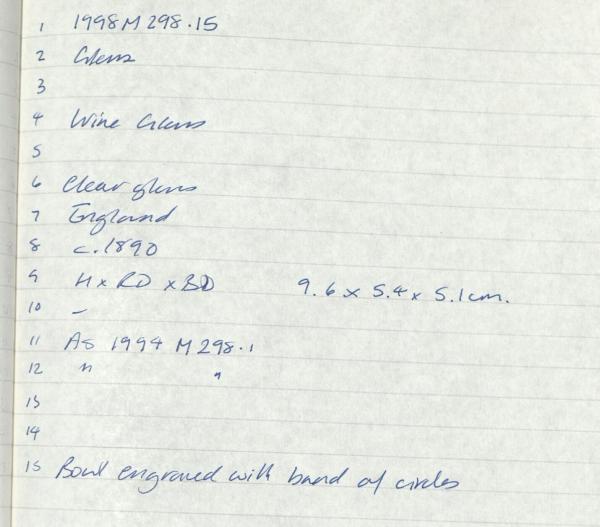 1 1998 M 298.15
2 Glass
3
4 Wine Glass
5
6 Clear glass
7 England
8 c. 1890
9 H x RD x BD 9.6 x 5.4 x 5.1cm.
10 –
11 As 1994 M 298.1
12 " "
13
14
15 Bowl engraved with band of circles